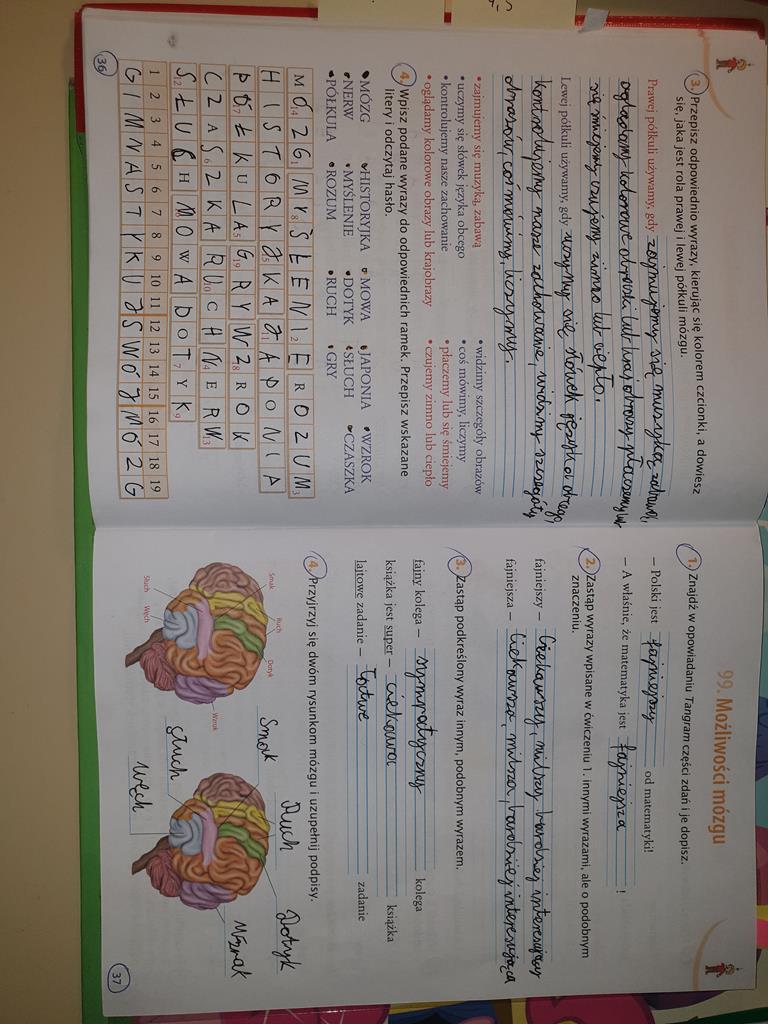 3. Przepisz odpowiednio wyrazy, kierując się kolorem czcionki, a dowiesz
się, jaka jest rola prawej i lewej półkuli mózgu.
Prawej półkuli używamy, gdy zajmujemy się muzyką, zabawą,
oglądamy kolorowe obrazki lub krajobrazy płaczemy lub
się śmiejemy czujemy zimno lub ciepło.
Lewej półkuli używamy, gdy uczymy się słówek języka obcego,
kontrolujemy nasze zachowanie, widzimy szczegóły
obrazów, coś mówimy, liczymy.
• zajmujemy się muzyką, zabawą
• uczymy się słówek języka obcego
• kontrolujemy nasze zachowanie
• oglądamy kolorowe obrazy lub krajobrazy
• widzimy szczegóły obrazów
• coś mówimy, liczymy
• płaczemy lub się śmiejemy
• czujemy zimno lub ciepło
4. Wpisz podane wyrazy do odpowiednich ramek. Przepisz wskazane
litery i odczytaj hasło.
• MÓZG • HISTORYJKA • MOWA • JAPONIA • WZROK
• NERW • MYŚLENIE • DOTYK • SŁUCH • CZASZKA
• PÓŁKULA • ROZUM • RUCH • GRY
MÓZG MYŚLENIE ROZUM
HISTORYJKA JAPONIA
PÓŁKULA GRY WZROK
CZASZKA RUCH NERW
SŁUCH MOWA DOTYK
1 2 3 4 5 6 7 8 9 10 11 12 13 14 15 16 17 18 19
GIMNASTYKUJ SWÓJ MÓZG
36
99. Możliwości mózgu
1. Znajdź w opowiadaniu Tangram części zdań i je dopisz.
– Polski jest fajniejszy od matematyki!
– A właśnie, że matematyka jest fajniejsza !
2. Zastąp wyrazy wpisane w ćwiczeniu 1. innymi wyrazami, ale o podobnym
znaczeniu.
fajniejszy – Ciekawszy, milszy bardziej interesujący
fajniejsza – Ciekawsza, milsza, bardziej interesująca
3. Zastąp podkreślony wyraz innym, podobnym wyrazem.
fajny kolega – sympatyczny kolega
książka jest super – ciekawa książka
lajtowe zadanie – Łatwe zadanie
4. Przyjrzyj się dwóm rysunkom mózgu i uzupełnij podpisy.
Smak
Ruch
Dotyk
Wzrok
Słuch
Węch
Smak
Ruch
Dotyk
Wzrok
Słuch
Węch
37